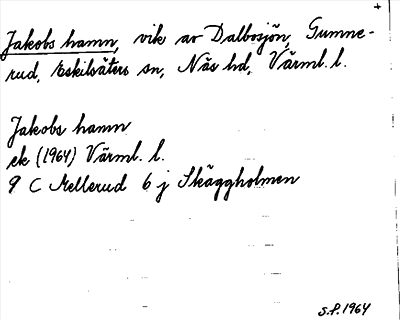 Jakobs hamn, vik av Dalbosjön, Gumne-
rud, Eskilsäters sn, Näs hd, Värml. l.
Jakobs hamn
ek (1964) Värml. l.
9 C Mellerud 6 j Skäggholmen
S.P. 1964